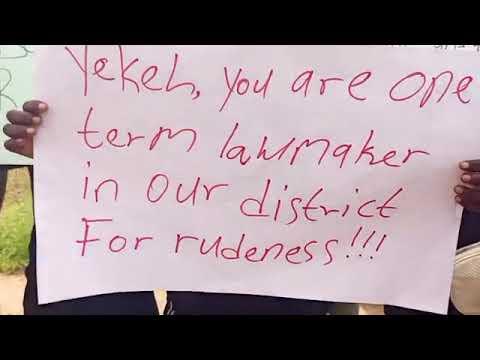 Yekeh, you are one
term lawmaker
in our district
For rudeness!!!